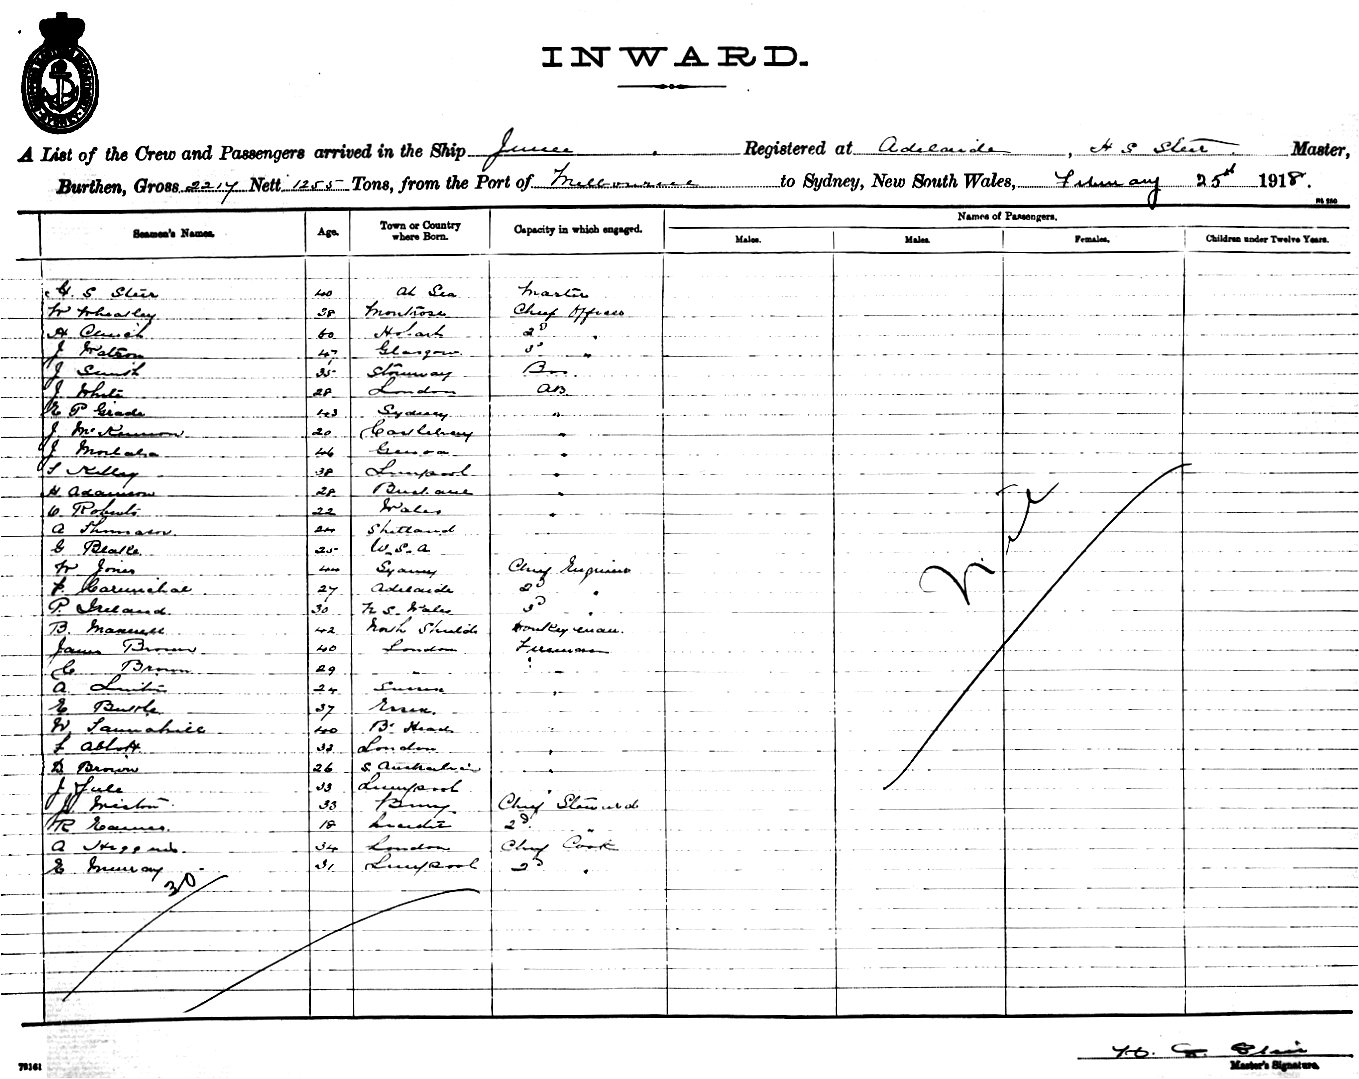 INWARD.
A List of the Crew and Passengers arrived in the Ship Junee. Registered at Adelaide, H S Steer Master,
Burthen, Gross 2217 Nett 1255 Tons, from the Port of Melbourne to Sydney, New South Wales, February 25th 1918.
Names of Passengers.
Seamen's Names. Age. Town or Country where Born. Capacity in which engaged. Males. Males. Females. Children under Twelve Years.
H. S Steer 40 At Sea Master
W Wheatley 38 Montrose Chief Officer
A Church 60 Hobart 2d "
J Watson 47 Glasgow 3d "
J Smith 35 Stornoway Bosn
J. White 28 London AB
E P Girade 43 Sydney "
J McKinnon 20 Castlebay "
J 46 Genoa "
T Kelly 38 Liverpool "
H Adamson 28 Brisbane "
O Roberts 22 Wales "
A Thomason 24 Shetland
G Blake 25 U.S.A
W Jones 44 Sydney Chief Engineer
F. Carmichal 27 Adelaide 2d "
P. Ireland 30 N S. Wales 3d "
B. Maxwell 42 North Shields Donkeyman.
James Brown 40 London Fireman
C Brown 29 " "
A. 24 Sussex "
E 37 Essex. "
W Tannahill 40 B. Head "
F Abbott 32 London "
D Brown 26 S Australia "
J Yule 33 Liverpool "
J. 33 Bury Chief Steward
R Eames. 18 2d. "
A Higgins. 34 London Chief Cook
E Murray 31 Liverpool 2d "
30
Nil
H. S. Steer
Master's Signature.
79161